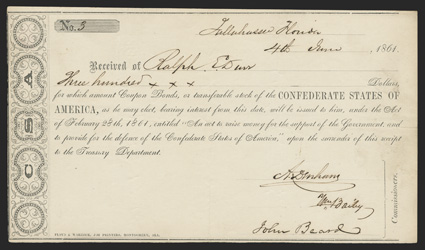 No. 3
Tallahassee Florida
4th June, 1861.
Received of Ralph
Three hundred x x x Dollars,
for which amount Coupon Bonds, or transferable stock of the CONFEDERATE STATES OF
AMERICA, as he may elect, bearing interest from this date, will be issued to him, under the Act
of February 28th, 1861, entitled "An act to raise money for the support of the Government, and
to provide for the defence of the Confederate States of America," upon the surrender of this receipt
to the Treasury Department.
Wm Bailey
John Beard
Commissioners.
C S A
JOB PRINTERS, MONTGOMERY, ALA.